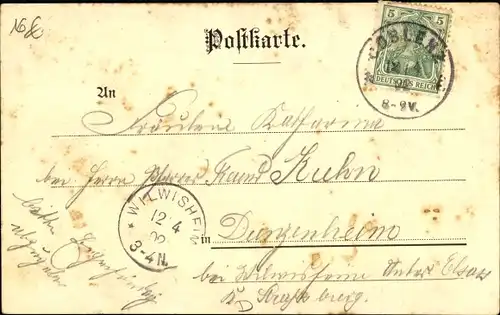 Postkarte.
5 5
COBLENZ
12 4
8-9V.
DEUTSCHES REICH
An
Fräulein Katharina
bei Herrn Pfarrer Kuhn
WILWISHEIM
12 4
02
3-4N.
in Dunzenheim
bei Wilwisheim Unter Elsass
Straßburg.
bitte